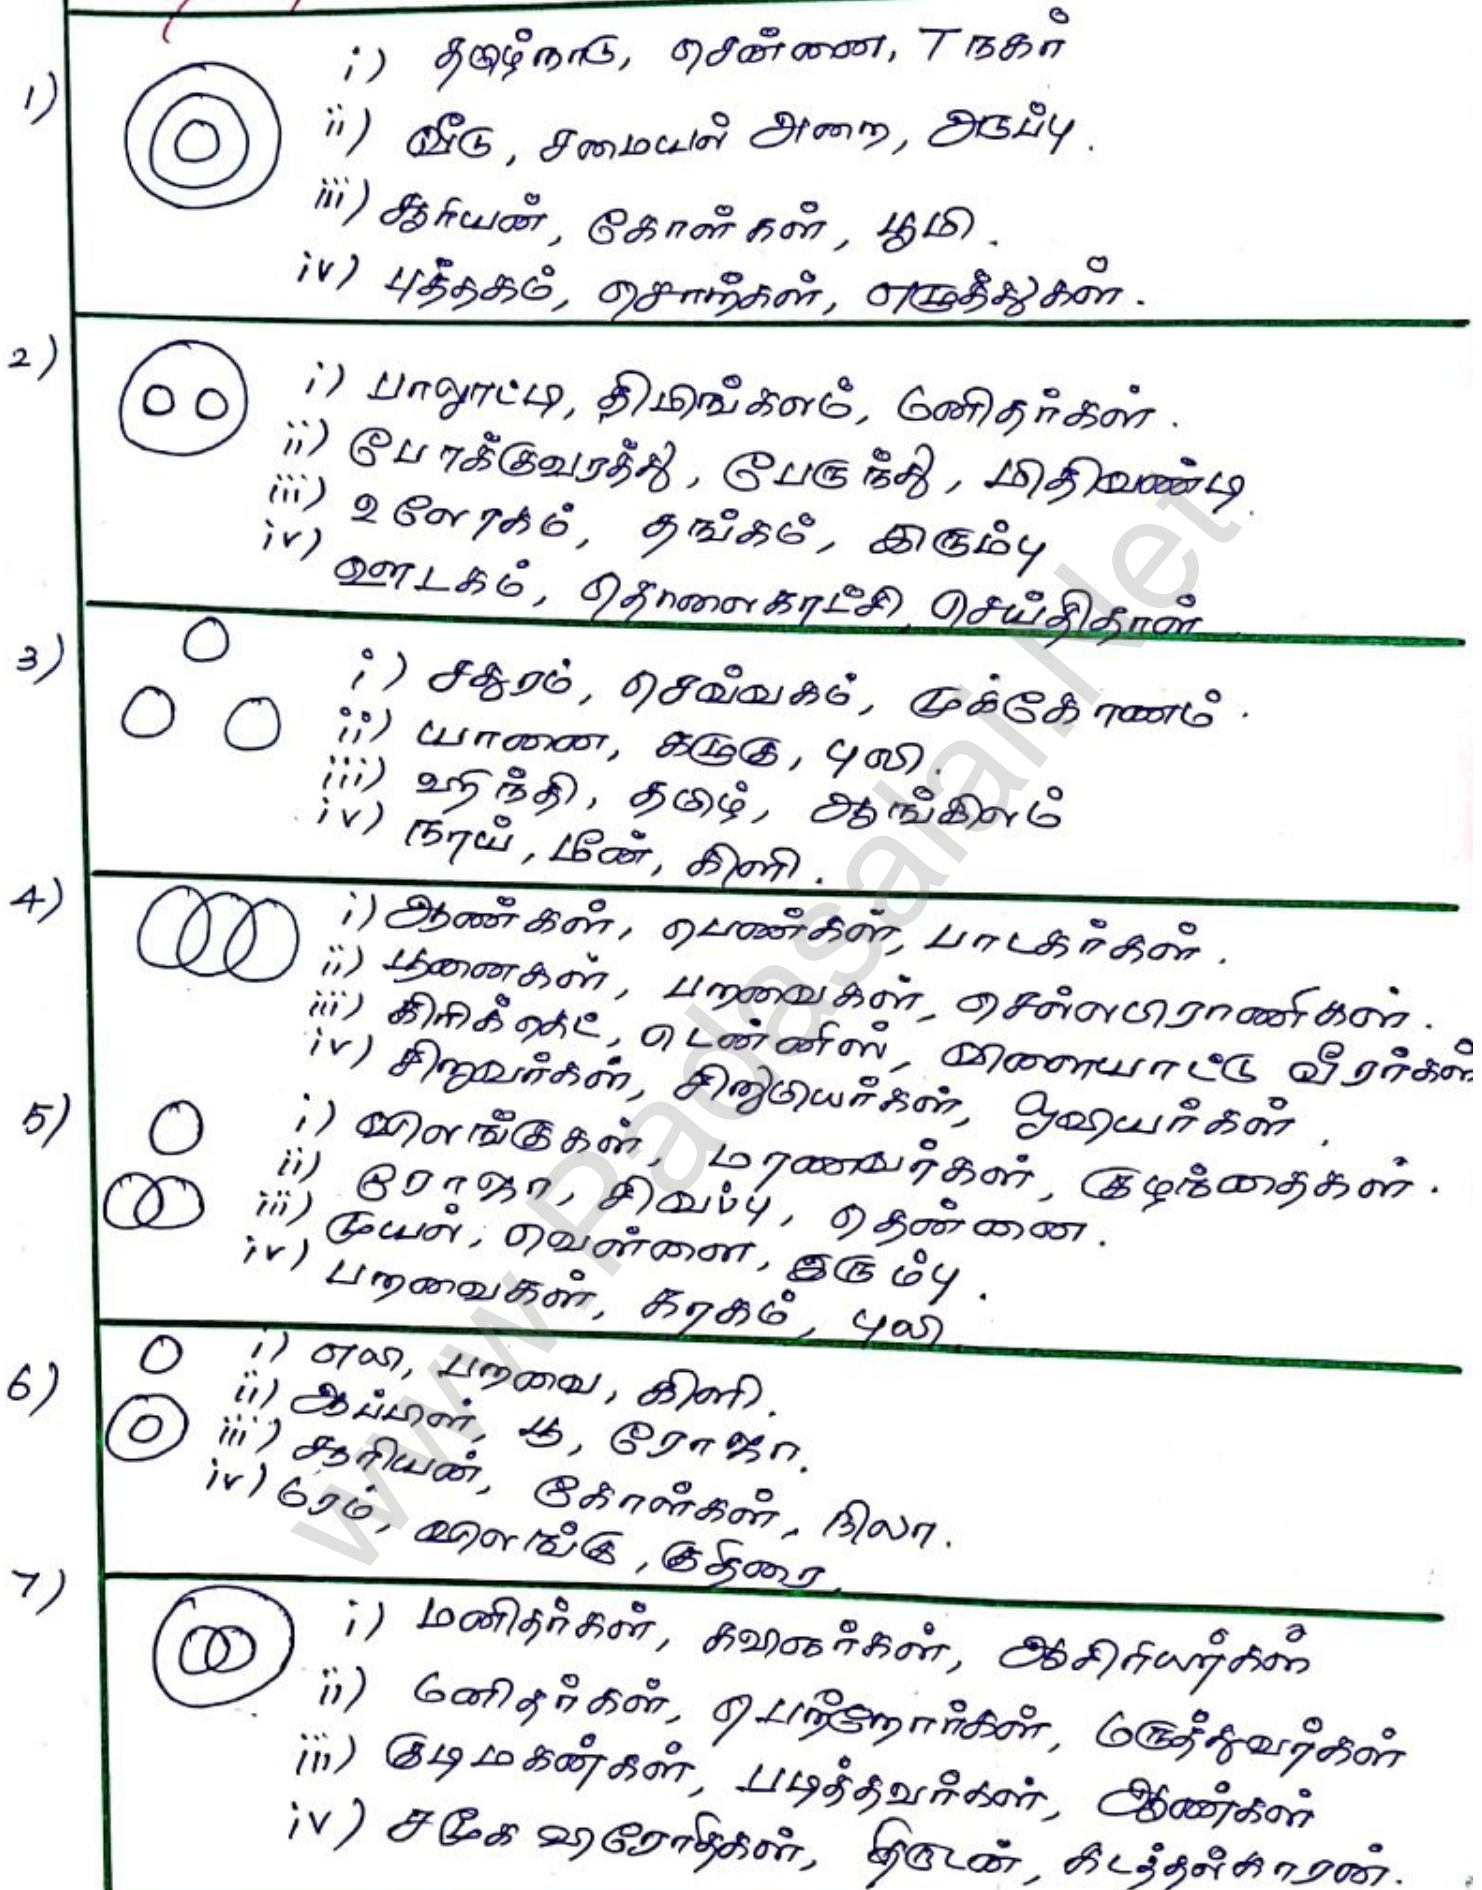 1)
i) தமிழ்நாடு, சென்னை, T நகர்
ii) வீடு, சமையல் அறை, அடுப்பு.
iii) சூரியன், கோள்கள், பூமி.
iv) புத்தகம், சொற்கள், எழுத்துகள்.
2)
i) பாலூட்டி, திமிங்களம், மனிதர்கள்.
ii) போக்குவரத்து, பேருந்து, மிதிவண்டி
iii) உலோகம், தங்கம், இரும்பு
iv) ஊடகம், தொலைகாட்சி, செய்திதாள்
3)
i) சதுரம், செவ்வகம், முக்கோணம்.
ii) யானை, கழுகு, புலி.
iii) ஹிந்தி, தமிழ், ஆங்கிலம்
iv) நாய், மீன், கிளி.
4)
i) ஆண்கள், பெண்கள், பாடகர்கள்.
ii) பூனைகள், பறவைகள், செல்லபிராணிகள்.
iii) கிரிக்கெட், டென்னிஸ், விளையாட்டு வீரர்கள்
iv) சிறுவர்கள், சிறுமியர்கள், ஓவியர்கள்.
5)
i) விலங்குகள், மாணவர்கள், குழந்தைகள்.
ii) ரோஜா, சிவப்பு, தென்னை.
iii) முயல், வெள்ளை, இரும்பு.
iv) பறவைகள், காகம், புலி
6)
i) எலி, பறவை, கிளி.
ii) ஆப்பிள், பூ, ரோஜா.
iii) சூரியன், கோள்கள், நிலா.
iv) மரம், விலங்கு, குதிரை.
7)
i) மனிதர்கள், கவிஞர்கள், ஆசிரியர்கள்
ii) மனிதர்கள், பெற்றோர்கள், மருத்துவர்கள்
iii) குடிமகன்கள், படித்தவர்கள், ஆண்கள்
iv) சமூக விரோதிகள், திருடன், கடத்தல்காரன்.
www.Padasalai.Net